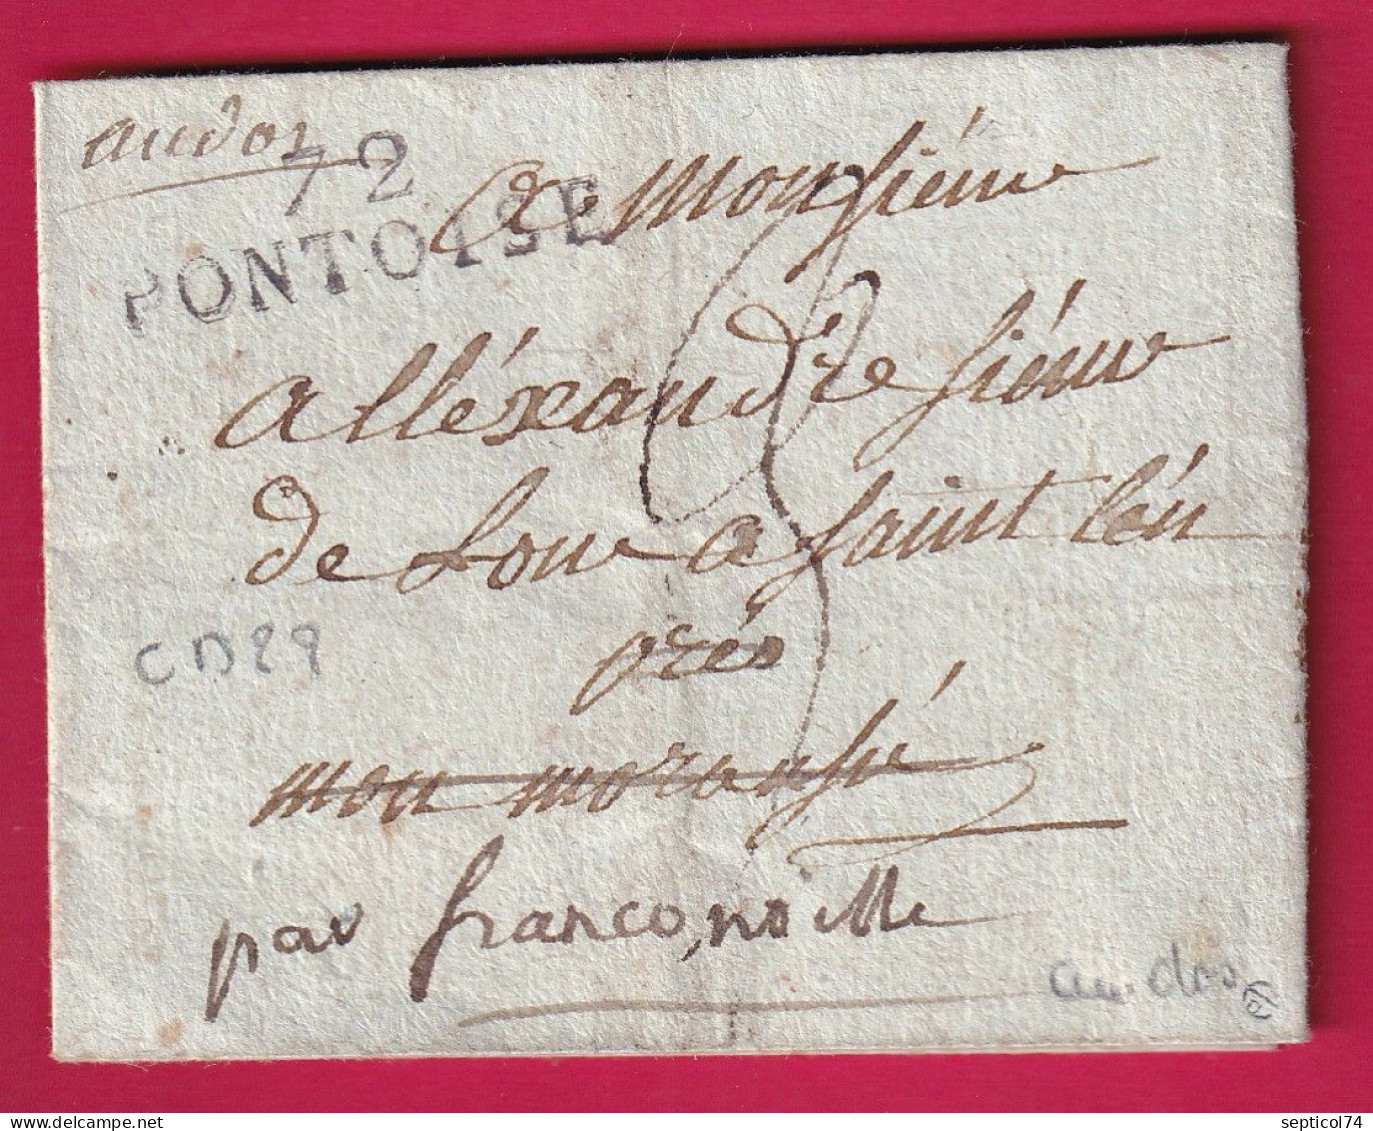 au dos
72
PONTOISE
a Monsieur
alléxandre sieur
de Lour a saint léu
prés
mon moransié
par franco,noille
CD29
au dos
septicol74